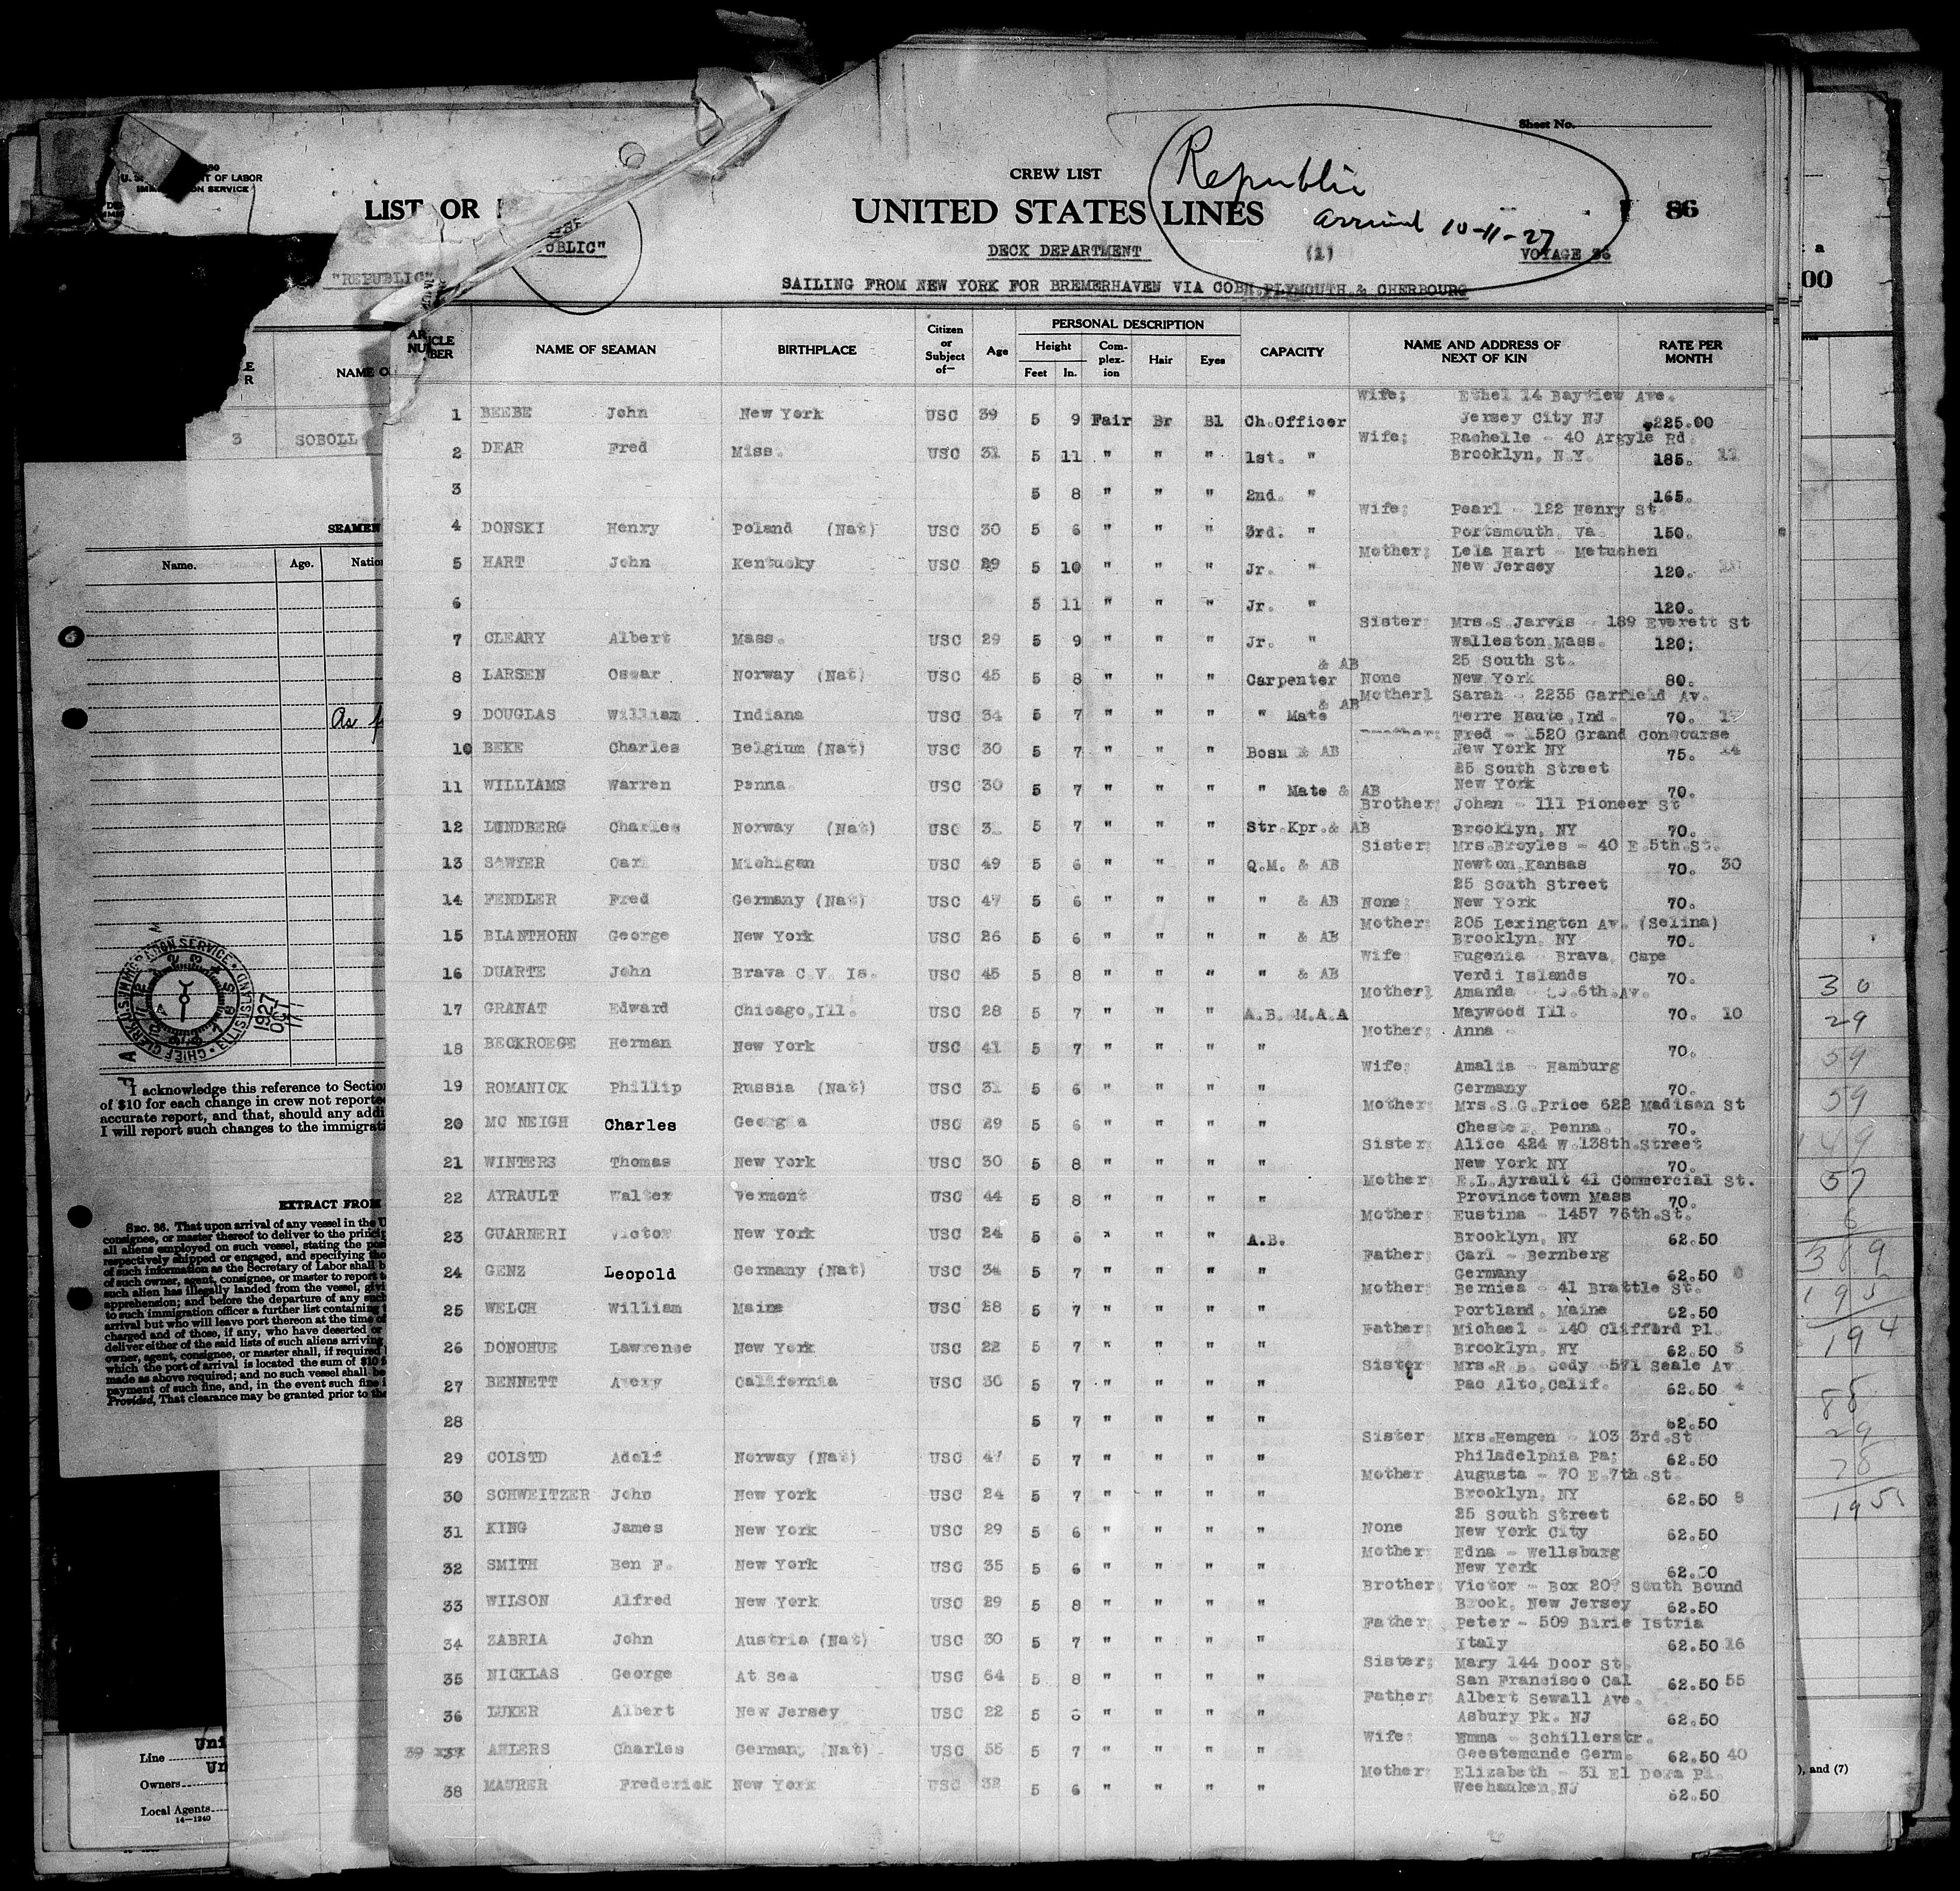 Sheet No.
CREW LIST
Republic
UNITED STATES LINES
arrived 10-11-27
86
DECK DEPARTMENT
(1)
VOYAGE 36
SAILING FROM NEW YORK FOR BREMERHAVEN VIA COBH, PLYMOUTH & CHERBOURG
LIST OR
"REPUBLIC"
NAME OF SEAMAN BIRTHPLACE Citizen or Subject of— Age PERSONAL DESCRIPTION Height Feet In. Com-plex-ion Hair Eyes CAPACITY NAME AND ADDRESS OF NEXT OF KIN RATE PER MONTH
Wife; Ethel 14 Bayview Ave.
1 BEEBE John New York USC 39 5 9 Fair Br Bl Ch.Officer Jersey City NJ $225.00
Wife; Rachelle - 40 Argyle Rd
2 DEAR Fred Miss. USC 31 5 11 " " " 1st. " Brooklyn, N.Y. 185.
3 5 8 " " " 2nd. " 165.
Wife; Pearl - 122 Henry St
4 DONSKI Henry Poland (Nat) USC 30 5 6 " " " 3rd. " Portsmouth, Va. 150.
Mother; Lela Hart - Metuchen
5 HART John Kentucky USC 29 5 10 " " " Jr. " New Jersey 120.
6 5 11 " " " Jr. " 120.
Sister Mrs.S.Jarvis - 189 Everett St
7 CLEARY Albert Mass. USC 29 5 9 " " " Jr. " Walleston Mass. 120;
& AB 25 South St.
8 LARSEN Oscar Norway (Nat) USC 45 5 8 " " " Carpenter None New York 80.
& AB Mother; Sarah - 2235 Garfield Av.
9 DOUGLAS William Indiana USC 34 5 7 " " " " Mate Terre Haute, Ind. 70.
Fred - 1520 Grand Concourse
10 BEKE Charles Belgium (Nat) USC 30 5 7 " " " Bosn & AB New York NY 75. 14
25 South Street
11 WILLIAMS Warren Penna. USC 30 5 7 " " " " Mate & AB New York 70.
Brother; Johan - 111 Pioneer St
12 LUNDBERG Charles Norway (Nat) USC 5 7 " " " Str.Kpr.& AB Brooklyn, NY 70.
Sister Mrs.Broyles - 40 E.5th.St.
13 SAWYER Carl Michigan USC 49 5 6 " " " Q.M. & AB Newton Kansas 70. 30
25 South Street
14 FENDLER Fred Germany (Nat) USC 47 5 6 " " " " & AB None; New York 70.
Mother; 205 Lexington Av. (Selina)
15 BLANTHORN George New York USC 26 5 6 " " " " & AB Brooklyn, NY 70.
Wife Eugenia - Brava, Cape
16 DUARTE John Brava C.V. Is. USC 45 5 8 " " " " & AB Verdi Islands 70.
Mother; Amanda - 6th.Av.
17 GRANAT Edward Chicago,Ill. USC 28 5 7 " " " A.B. M.A.A Maywood Ill. 70. 10
Mother; Anna -
18 BECKROEGE Herman New York USC 41 5 7 " " " " 70.
Wife; Amalia - Hamburg
19 ROMANICK Phillip Russia (Nat) USC 31 5 6 " " " " Germany 70.
Mother; Mrs.S.G.Price 622 Madison St
20 MC NEIGH Charles Georgia USC 29 5 6 " " " " Chester, Penna. 70.
Sister; Alice 424 W.138th.Street
21 WINTERS Thomas New York USC 30 5 8 " " " " New York NY 70.
Mother; E.L.Ayrault 41 Commercial St.
22 AYRAULT Walter Vermont USC 44 5 8 " " " " Provincetown Mass 70.
Mother; Eustina - 1457 76th.St.
23 GUARNERI Victor New York USC 24 5 6 " " " A.B. Brooklyn, NY 62.50
Father; Carl - Bernberg
24 GENZ Leopold Germany (Nat) USC 34 5 7 " " " " Germany 62.50
Mother; Berniea - 41 Brattle St.
25 WELCH William Maine USC 28 5 7 " " " " Portland, Maine 62.50
Father; Michael - 140 Clifford Pl.
26 DONOHUE Lawrense New York USC 22 5 7 " " " " Brooklyn, NY 62.50
Sister Mrs.R.B. Cody 571 Seale Av
27 BENNETT Avery California USC 30 5 7 " " " " Pao Alto,Calif. 62.50
28 5 7 " " " " 62.50
Sister Mrs.Hemgen - 103 3rd.St
29 COLSTD Adolf Norway (Nat) USC 47 5 7 " " " " Philadelphia Pa; 62.50
Mother Augusta - 70 E.7th.St.
30 SCHWEITZER John New York USC 24 5 7 " " " " Brooklyn, NY 62.50 8
25 South Street
31 KING James New York USC 29 5 6 " " " " None New York City 62.50
Mother; Edna - Wellsburg
32 SMITH Ben F. New York USC 35 5 6 " " " " New York 62.50
Brother; Victor - Box 207 South Bound
33 WILSON Alfred New York USC 29 5 8 " " " " Brook, New Jersey 62.50
Father; Peter - 509 Birie Istria
34 ZABRIA John Austria (Nat) USC 30 5 7 " " " " Italy 62.50 16
Sister; Mary 144 Door St.
35 NICKLAS George At Sea USC 64 5 8 " " " " San Francisco Cal 62.50 55
Father; Albert Sewall Ave.
36 LUKER Albert New Jersey USC 22 5 6 " " " " Asbury Pk. NJ 62.50
Wife; Emma - Schillerstr.
39 AHLERS Charles Germany (Nat) USC 55 5 7 " " " " Geestemunde Germ. 62.50 40
Mother; Elizabeth - 31 El Dora Pl.
38 MAURER Frederick New York USC 32 5 6 " " " " Weehauken,NJ 62.50
NAME O
3 SOBOLL
SEAMEN
Name. Age. Natio
As
1927 OCT 11
I acknowledge this reference to Section
of $10 for each change in crew not reporte
accurate report, and that, should any addi
I will report such changes to the immigrati
EXTRACT FROM
SEC. 36. That upon arrival of any vessel in the U
consignee, or master thereof to deliver to the princip
all aliens employed on such vessel, stating the pos
respectively shipped or engaged, and specifying tho
of such information as the Secretary of Labor shall b
of such owner, agent, consignee, or master to report t
such alien has illegally landed from the vessel, givi
apprehension; and before the departure of any such
to such immigration officer a further list containing t
arrival but who will leave port thereon at the time of
charged and of those, if any, who have deserted or
deliver either of the said lists of such aliens arriving
owner, agent, consignee, or master shall, if required
which the port of arrival is located the sum of $10 f
made as above required; and no such vessel shall be
payment of such fine, and, in the event such fine i
Provided, That clearance may be granted prior to the
Line
Owners
Local Agents
14—1240
30
29
59
59
149
57
6
369
195
194
88
29
78
195
), and (7)